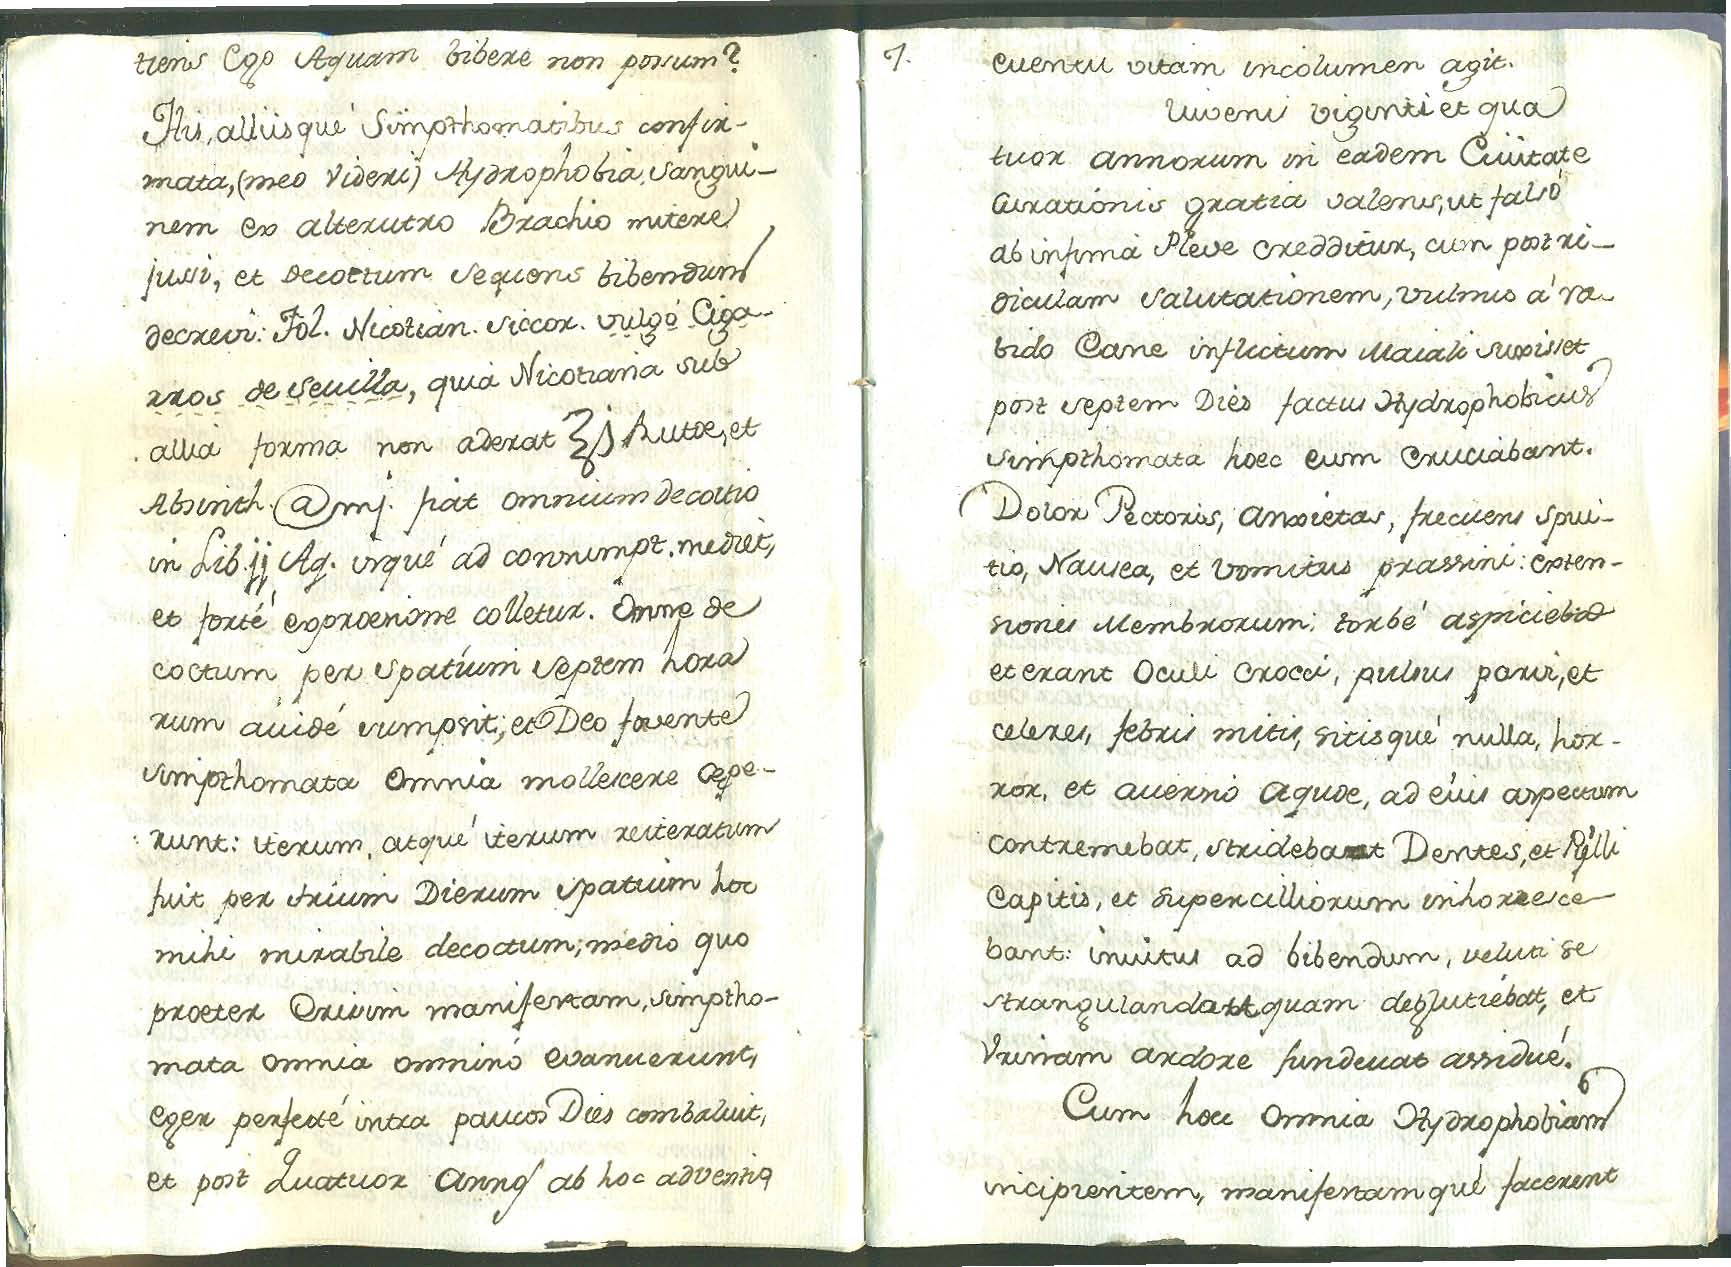 tiens Ego Aquam bibere non possum?
His, alliisqué Simpthomatibus confir-
mata, (meo videri) Hydrophobia, sangui-
nem ex alterutro Brachio mitere
jussi, et decottum sequens bibendum
decrevi: Fol. Nicotian. siccor. vulgó Ciga-
rros de Sevilla, quia Nicotiana sub
allia forma non aderat ℥j Rutoe, et
Absinth. @ mj. fiat omnium decoctio
in Lib. jj Aq. usqué ad consumpt. mediet,
et forté exproesione colletur. Omne de
coctum per spatium septem hora
rum avidé sumpsit; et Deo fovente
simpthomata omnia mollescere coepe-
runt: iterum, atqué iterum reiteratum
fuit per trium Dierum spatium hoc
mihi mirabile decoctum; medio quo
proeter Crisim manifestam, simptho-
mata omnia omninó evanuerunt,
Eger perfecté intra paucos Dies combaluit,
et post Quatuor annos ab hoc adventio
7.
euentu vitam incolumen agit.
Iuveni viginti et qua
tuor annorum in eadem Ciuitate
Curationis gratia valens, ut falsó
ab infima Pleve credditur, cum post ri-
diculam salutationem, vulnus á ra-
bido Cane inflictum Maiali suxisset
post septem Dies factus Hydrophobicus
simpthomata hoec eum cruciabant.
Dolor Pectoris, anxietas, frecuens spui-
tio, Nausea, et vomitus prassini: exten-
siones Membrorum: torbé aspiciebad
et erant Oculi crocei, pulsus parvi, et
celeres, febris mitis, sitisqué nulla, hor-
ror, et auersio aquoe, ad eius aspectum
contremebat, stridebant Dentes, et Pilli
Capitis, et supercilliorum inhoresce
bant: invitus ad bibendum, veluti se
strangulandam quam deglutiebat, et
Vrinam ardore fundeuat assidué.
Cum hoec omnia Hydrophobiam
incipientem, manifestamqué facerent